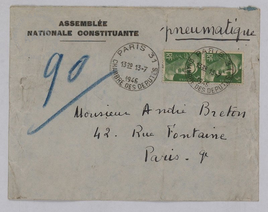 ASSEMBLÉE
NATIONALE CONSTITUANTE
pneumatique
90
PARIS 31
13H 13-7
1946
CHAMBRE DES DEPUTES
PARIS
Monsieur André Breton
42. Rue Fontaine
Paris. 9e